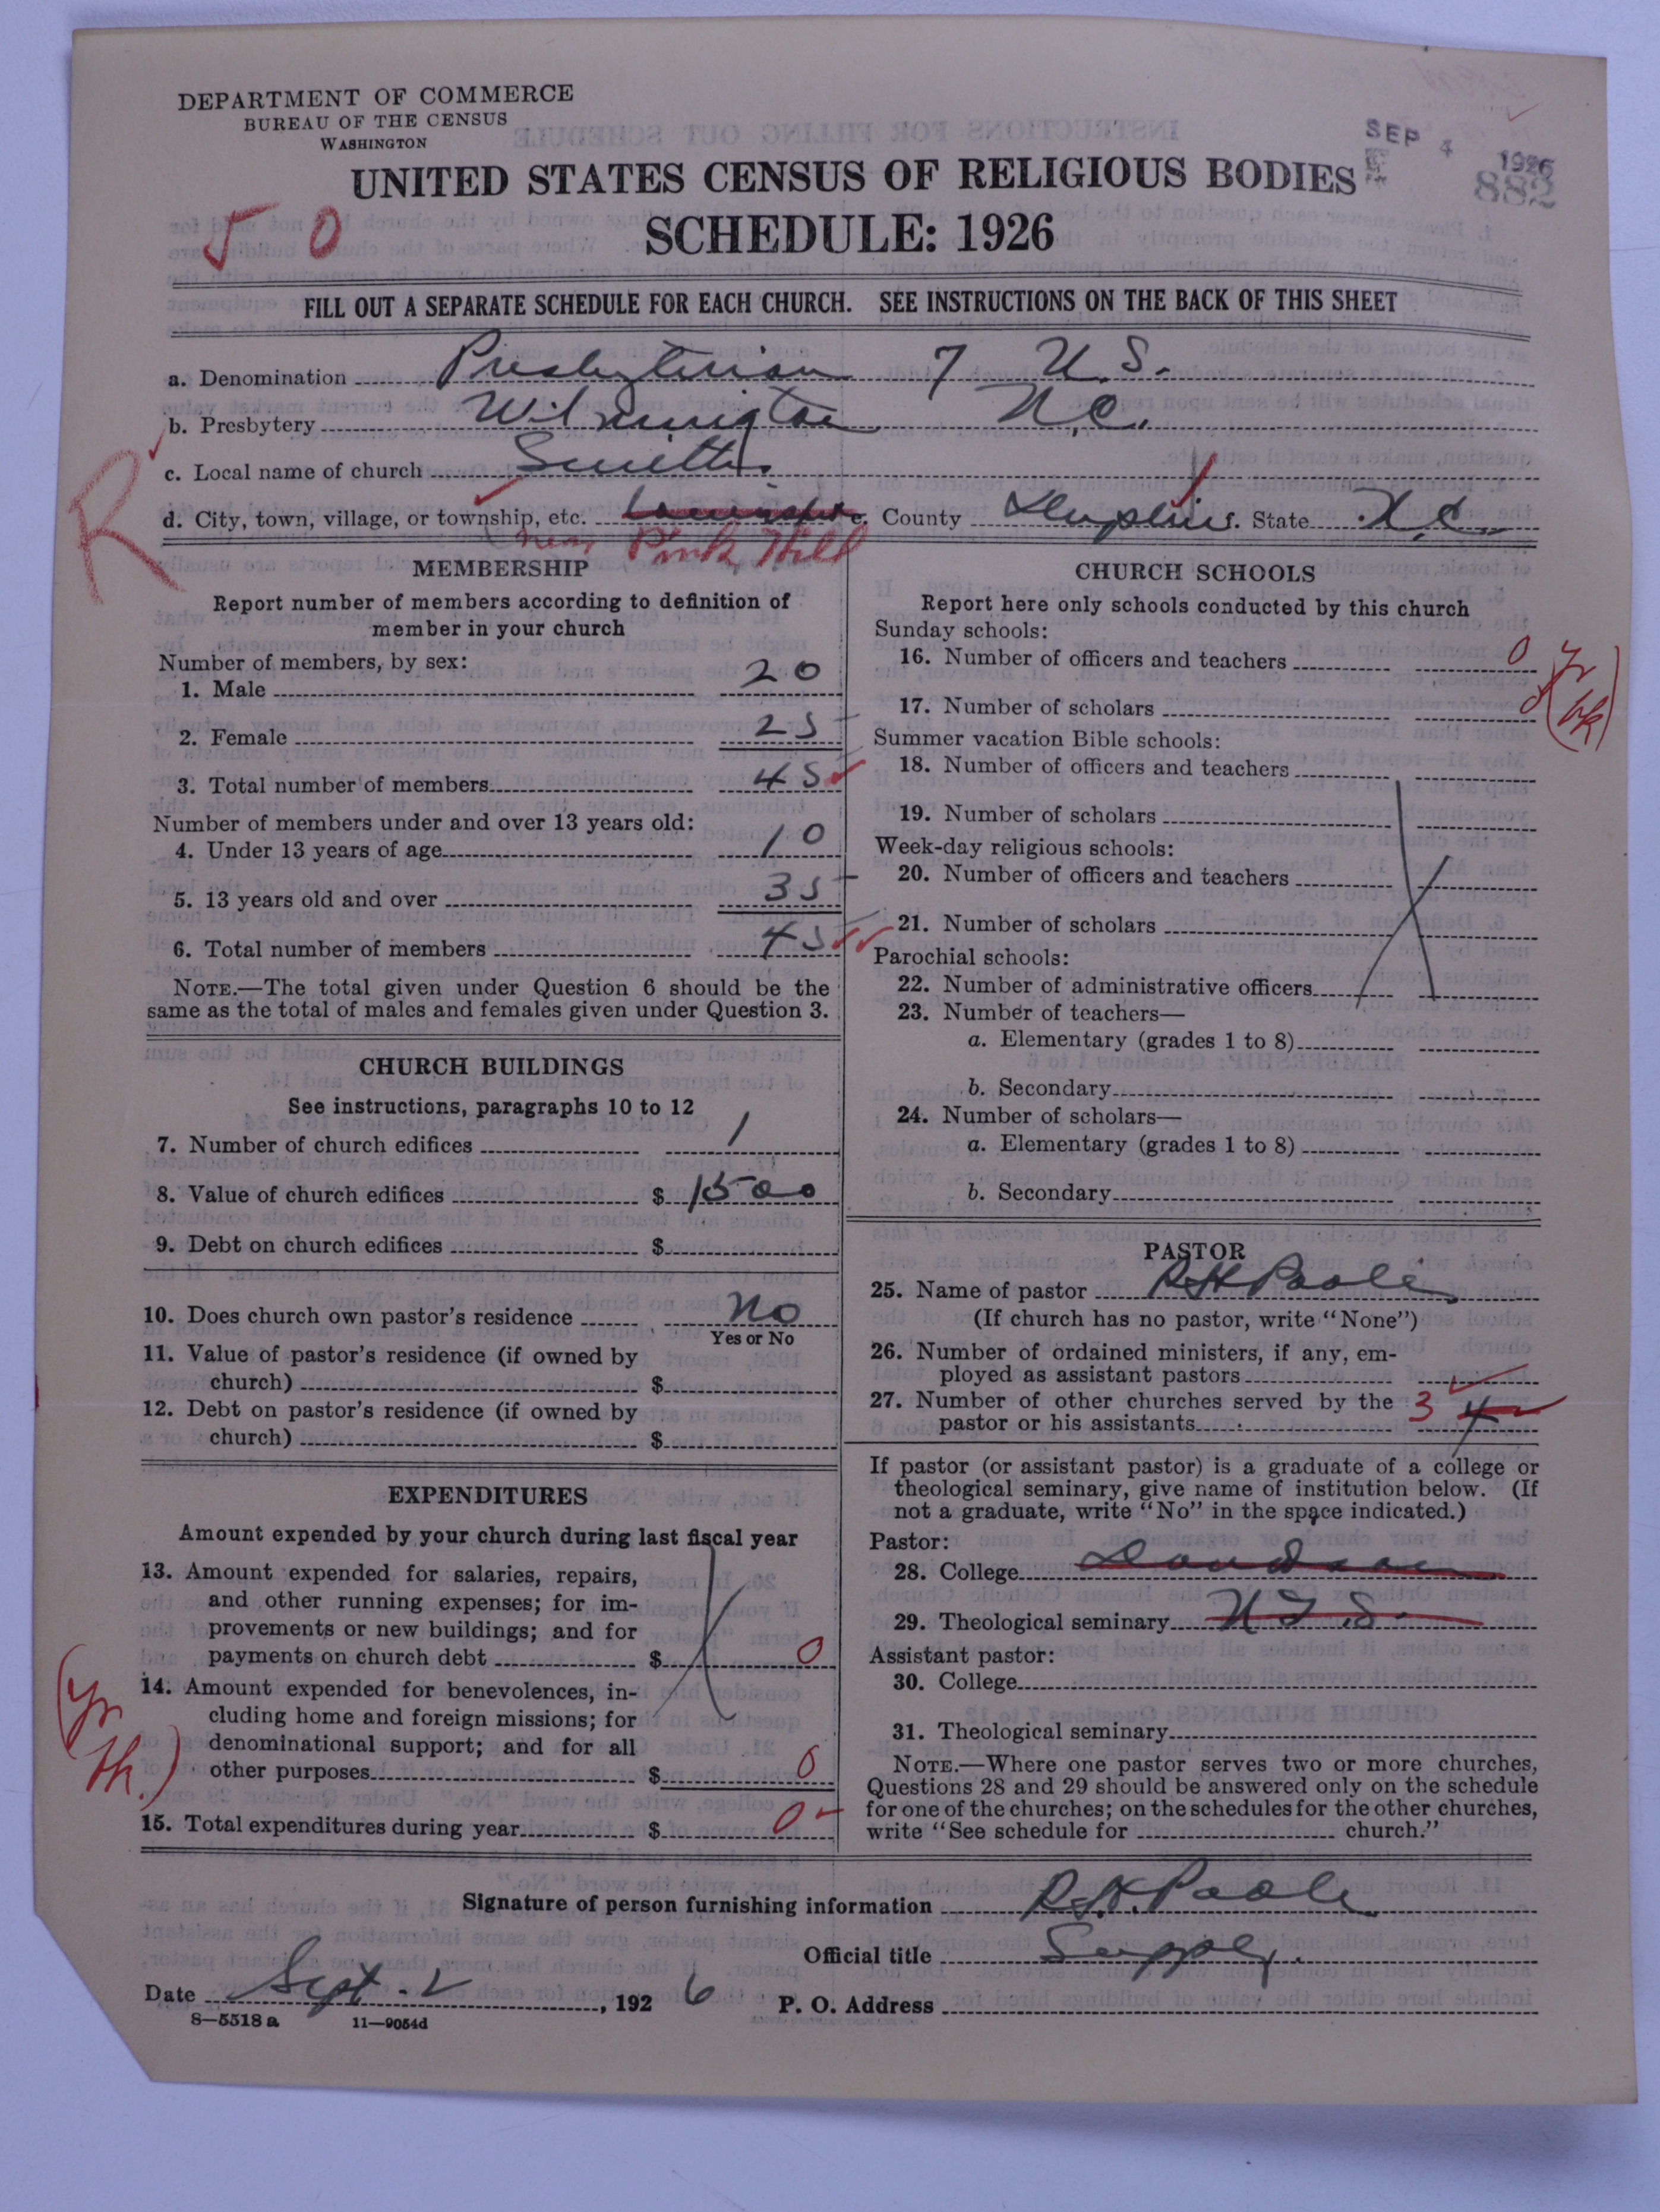 DEPARTMENT OF COMMERCE
BUREAU OF THE CENSUS
WASHINGTON
UNITED STATES CENSUS OF RELIGIOUS BODIES
SCHEDULE: 1926
SEP 4 1926
882
5 0
FILL OUT A SEPARATE SCHEDULE FOR EACH CHURCH. SEE INSTRUCTIONS ON THE BACK OF THIS SHEET
a. Denomination Presbyterian 7 U.S.
b. Presbytery Wilmington N.C.
R
c. Local name of church Smith
d. City, town, village, or township, etc. County Duplin. State N.C.
near Pink Hill
MEMBERSHIP
Report number of members according to definition of
member in your church
Number of members, by sex:
1. Male 20
2. Female 25
3. Total number of members 45
Number of members under and over 13 years old:
4. Under 13 years of age 10
5. 13 years old and over 35
6. Total number of members 45
NOTE.—The total given under Question 6 should be the
same as the total of males and females given under Question 3.
CHURCH BUILDINGS
See instructions, paragraphs 10 to 12
7. Number of church edifices 1
8. Value of church edifices $ 1500
9. Debt on church edifices $
10. Does church own pastor's residence No
Yes or No
11. Value of pastor's residence (if owned by
church) $
12. Debt on pastor's residence (if owned by
church) $
EXPENDITURES
Amount expended by your church during last fiscal year
13. Amount expended for salaries, repairs,
and other running expenses; for im-
provements or new buildings; and for
payments on church debt $ 0
14. Amount expended for benevolences, in-
cluding home and foreign missions; for
denominational support; and for all
other purposes $ 0
15. Total expenditures during year $ 0
CHURCH SCHOOLS
Report here only schools conducted by this church
Sunday schools:
16. Number of officers and teachers 0
17. Number of scholars 0
(Yr bk)
Summer vacation Bible schools:
18. Number of officers and teachers
19. Number of scholars
Week-day religious schools:
20. Number of officers and teachers
21. Number of scholars
Parochial schools:
22. Number of administrative officers
23. Number of teachers—
a. Elementary (grades 1 to 8)
b. Secondary
24. Number of scholars—
a. Elementary (grades 1 to 8)
b. Secondary
PASTOR
25. Name of pastor R H Poole
(If church has no pastor, write "None")
26. Number of ordained ministers, if any, em-
ployed as assistant pastors
27. Number of other churches served by the
pastor or his assistants 3 4
If pastor (or assistant pastor) is a graduate of a college or
theological seminary, give name of institution below. (If
not a graduate, write "No" in the space indicated.)
Pastor:
28. College
29. Theological seminary U T S.
Assistant pastor:
30. College
31. Theological seminary
NOTE.—Where one pastor serves two or more churches,
Questions 28 and 29 should be answered only on the schedule
for one of the churches; on the schedules for the other churches,
write "See schedule for church."
Signature of person furnishing information R.H. Poole
Official title Supply.
Date Sept. 2, 1926 P. O. Address
8—5518 a 11—9054d